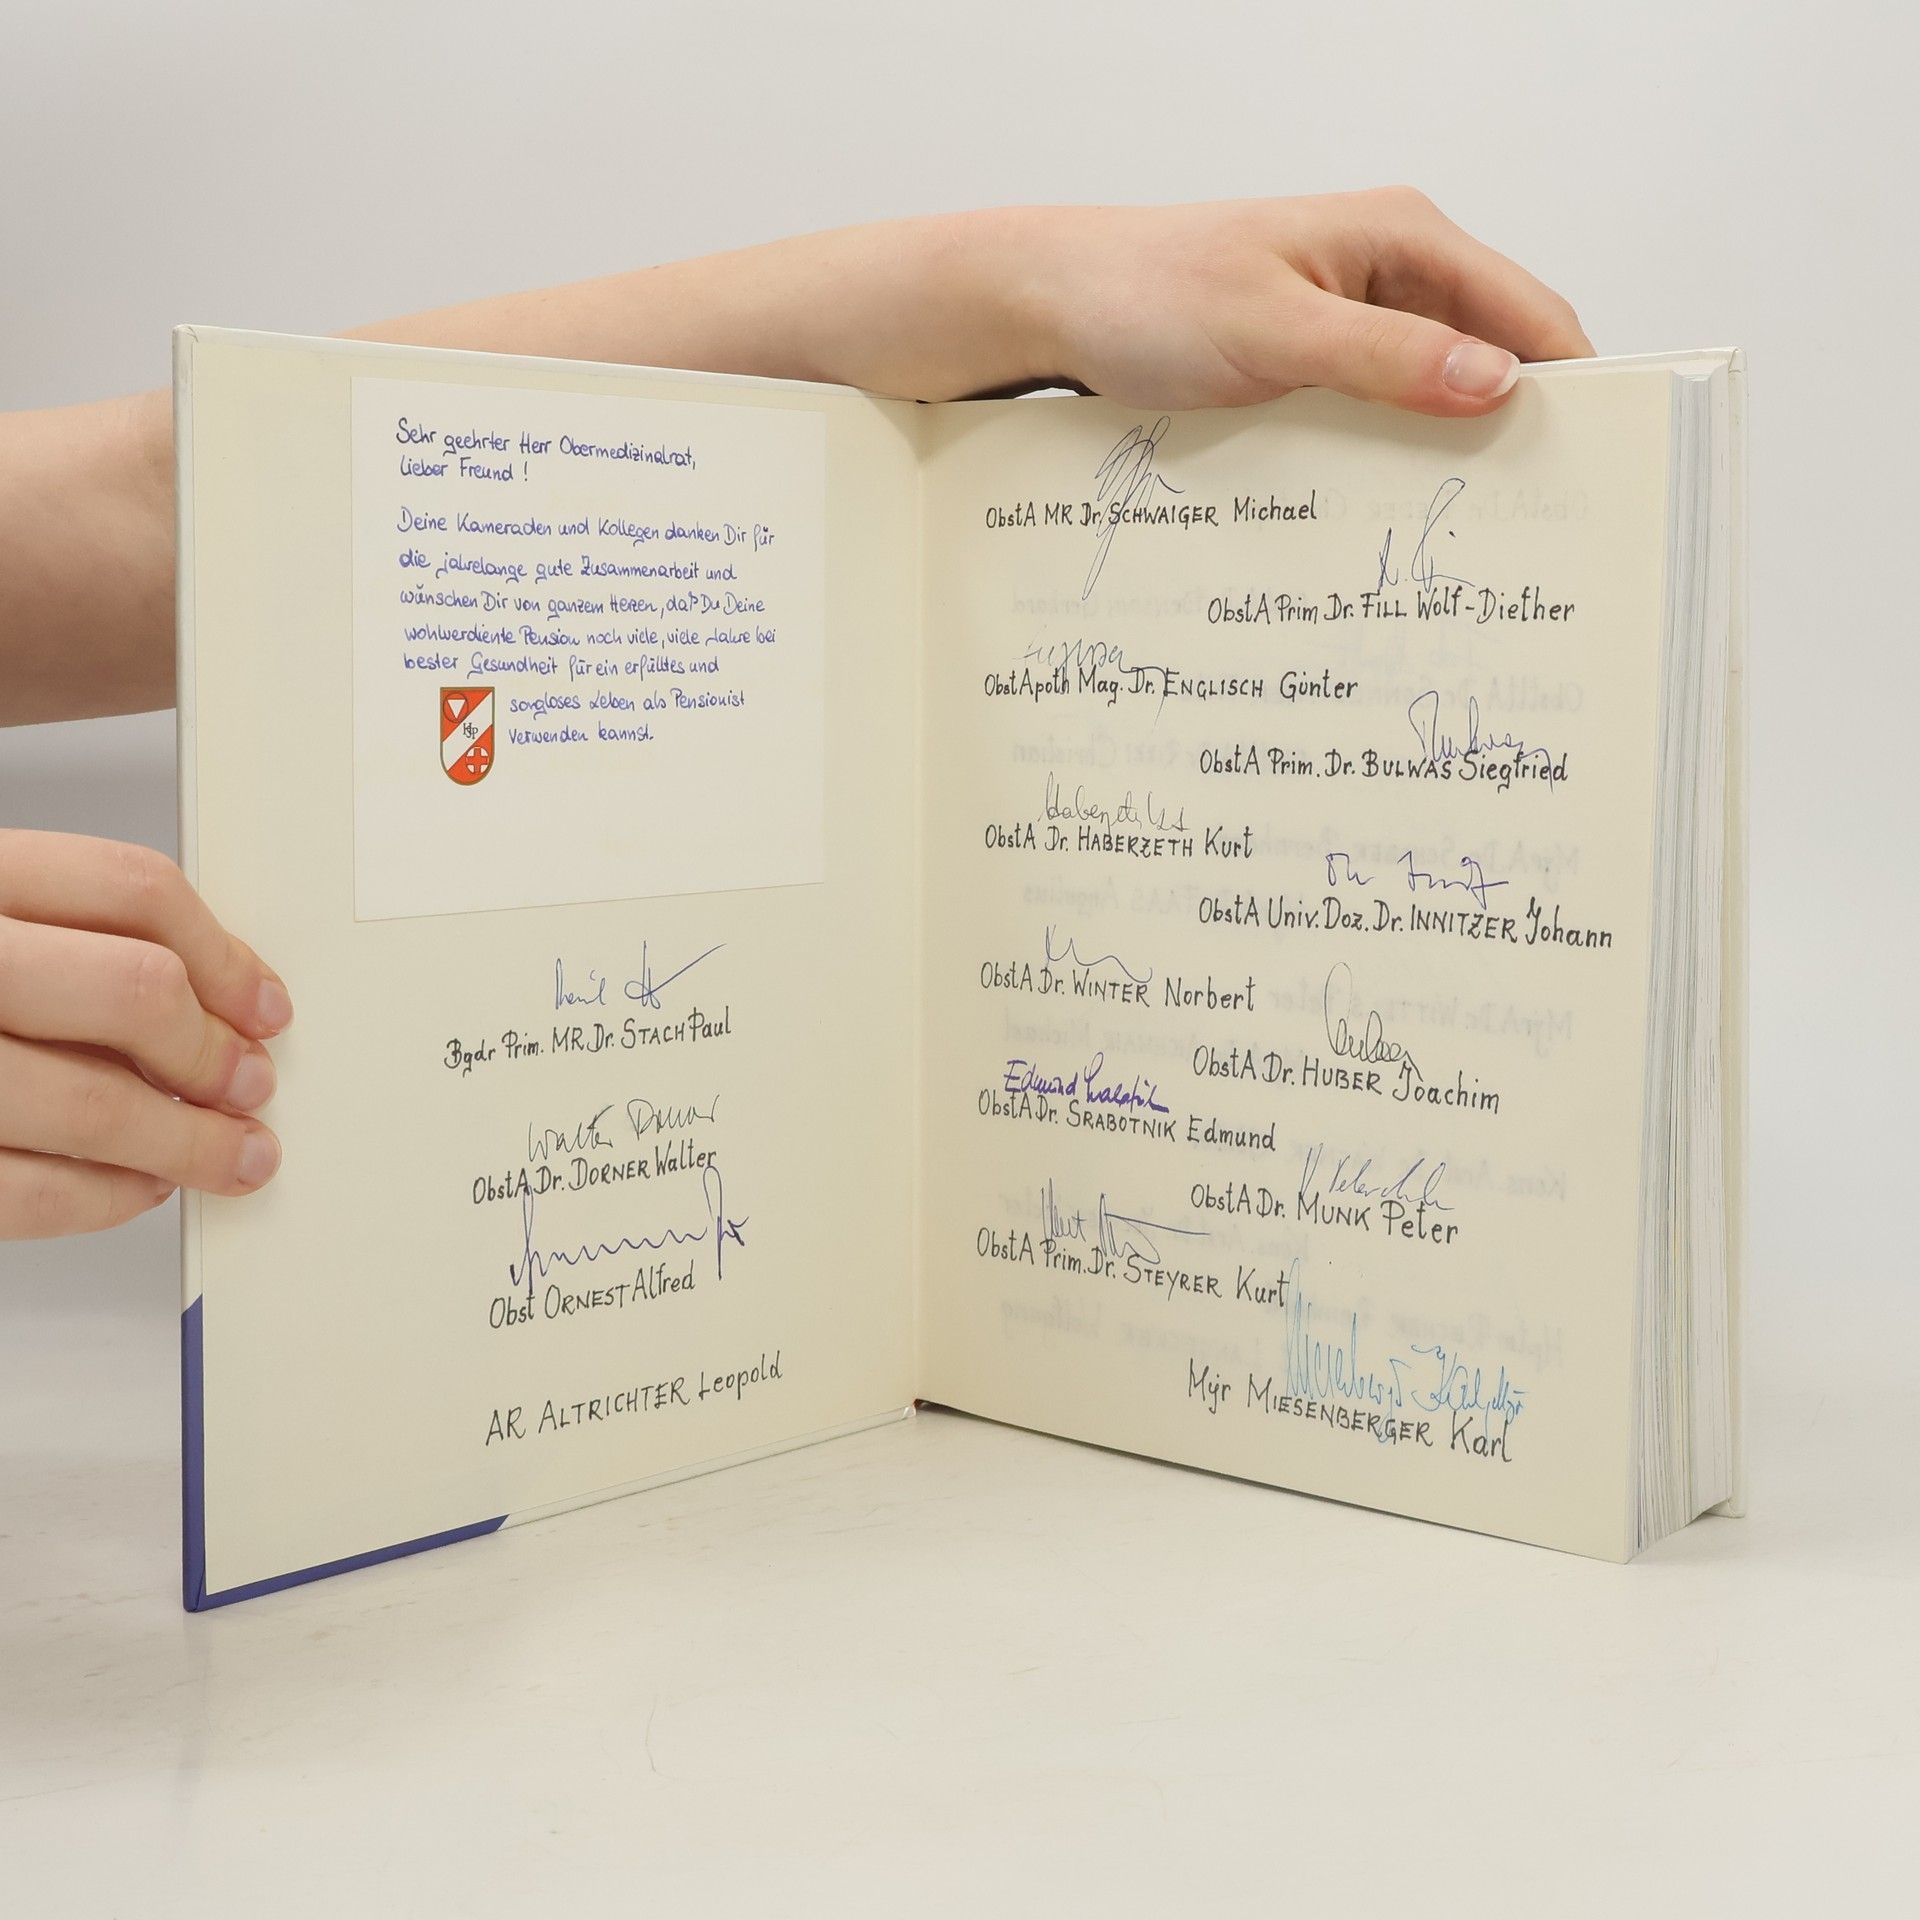 Sehr geehrter Herr Obermedizinalrat,
lieber Freund !
Deine Kameraden und Kollegen danken Dir für
die jahrelange gute Zusammenarbeit und
wünschen Dir von ganzem Herzen, daß Du Deine
wohlverdiente Pension noch viele, viele Jahre bei
bester Gesundheit für ein erfülltes und
sorgloses Leben als Pensionist
verwenden kannst.
Bgdr Prim. MR. Dr. STACH Paul
Walter Dorner
ObstA Dr. DORNER Walter
Obst ORNEST Alfred
AR ALTRICHTER Leopold
ObstA MR Dr. SCHWAIGER Michael
ObstA Prim Dr. FILL Wolf-Diether
ObstApoth Mag. Dr. ENGLISCH Günter
ObstA Prim. Dr. BULWAS Siegfried
ObstA Dr. HABERZETH Kurt
ObstA Univ. Doz. Dr. INNITZER Johann
ObstA Dr. WINTER Norbert
ObstA Dr. HUBER Joachim
Edmund
ObstA Dr. SRABOTNIK Edmund
ObstA Dr. MUNK Peter
ObstA Prim. Dr. STEYRER Kurt
Mjr MIESENBERGER Karl